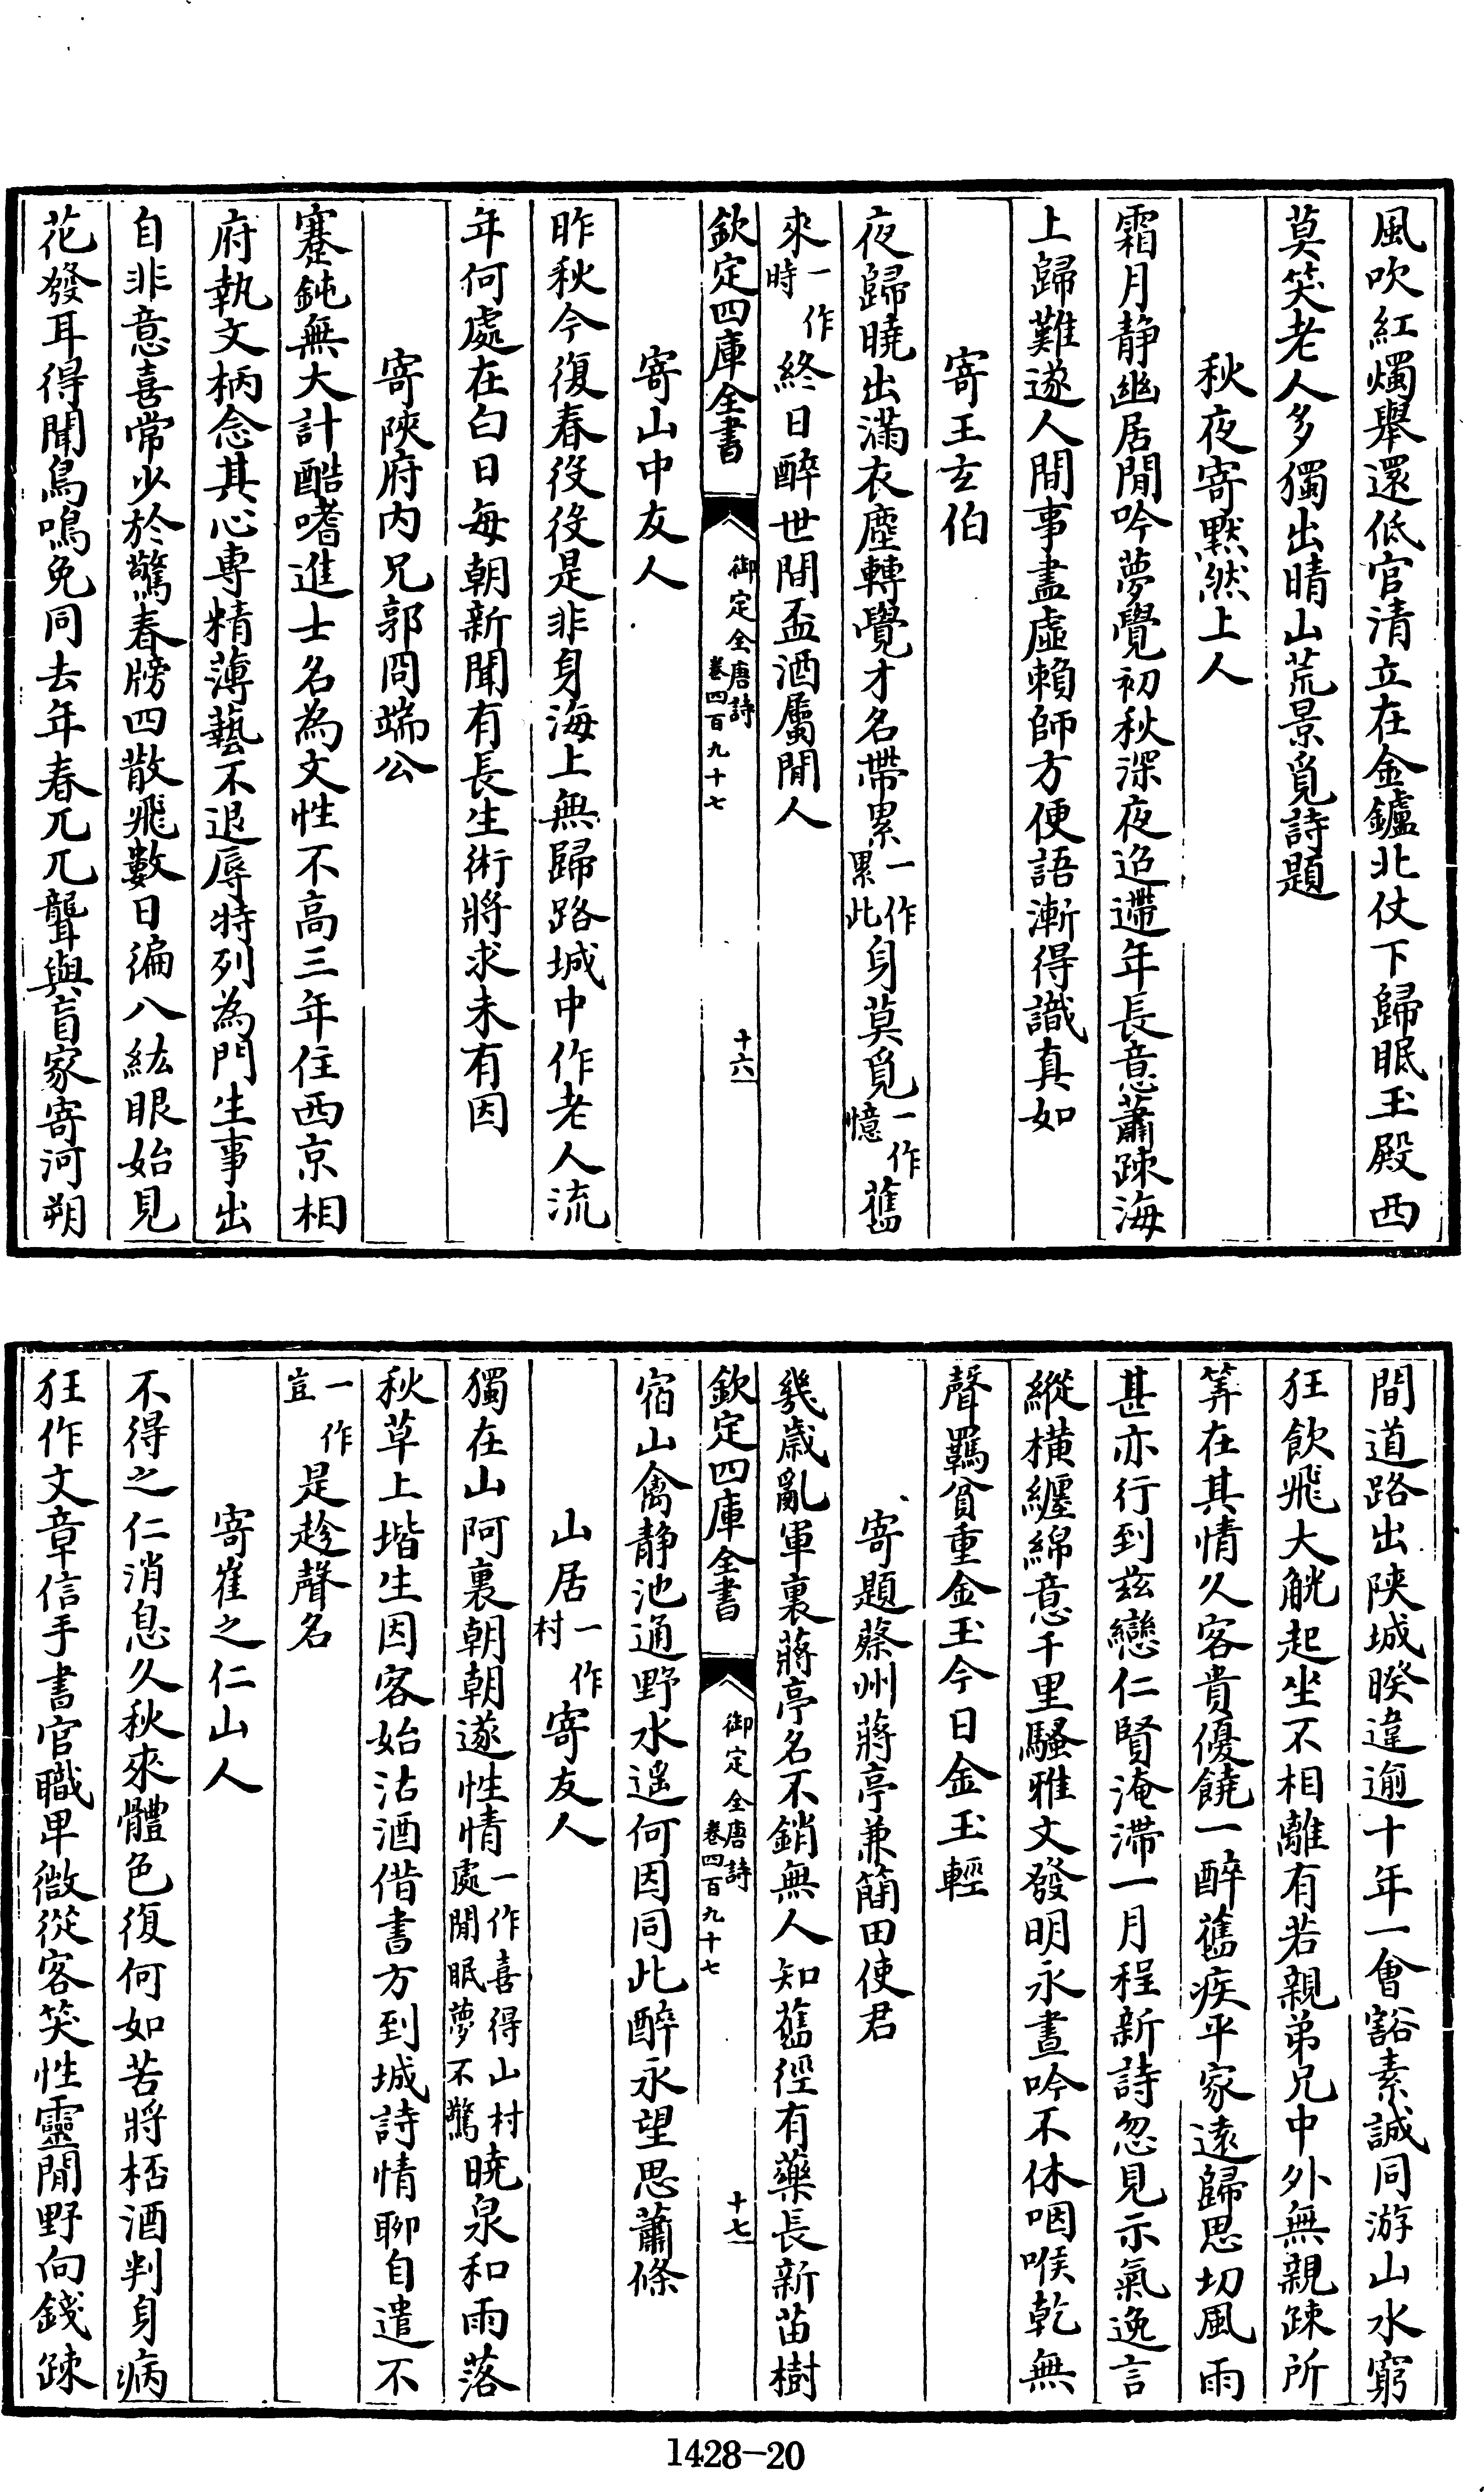 風吹紅燭舉還低官清立在金鑪北仗下歸眠玉殿西
莫笑老人多獨出晴山荒景覓詩題
秋夜寄默然上人
霜月静幽居閒吟夢覺初秋深夜迢遰年長意蕭疎海
上歸難遂人間事盡虛賴師方便語漸得識真如
寄王玄伯
夜歸曉出滿衣塵轉覺才名帶累一作累此身莫覓一作憶舊
來一作時終日醉世間盃酒屬閒人
欽定四庫全書 御定全唐詩卷四百九十七 十六
寄山中友人
昨秋今復春役役是非身海上無歸路城中作老人流
年何處在白日每朝新聞有長生術將求未有因
寄陝府内兄郭冏端公
蹇鈍無大計酷嗜進士名為文性不高三年住西京相
府執文柄念其心專精薄藝不退辱特列為門生事出
自非意喜常少於驚春牓四散飛數日徧八紘眼始見
花發耳得聞鳥鳴免同去年春兀兀聾與盲家寄河朔
間道路出陝城暌違逾十年一會豁素誠同游山水窮
狂飲飛大觥起坐不相離有若親弟兄中外無親疎所
筭在其情久客貴優饒一醉舊疾平家遠歸思切風雨
甚亦行到兹戀仁賢淹滯一月程新詩忽見示氣逸言
縱橫纏綿意千里騷雅文發明永晝吟不休咽喉乾無
聲羈貧重金玉今日金玉輕
寄題蔡州蔣亭兼簡田使君
幾歲亂軍裏蔣亭名不銷無人知舊徑有藥長新苗樹
欽定四庫全書 御定全唐詩卷四百九十七 十七
宿山禽静池通野水遥何因同此醉永望思蕭條
山居一作村寄友人
獨在山阿裏朝朝遂性情一作喜得山村處閒眠夢不驚曉泉和雨落
秋草上堦生因客始沽酒借書方到城詩情聊自遣不
一作豈是趁聲名
寄崔之仁山人
不得之仁消息久秋來體色復何如苦將桮酒判身病
狂作文章信手書官職卑微從客笑性靈閒野向錢疎
1428-20